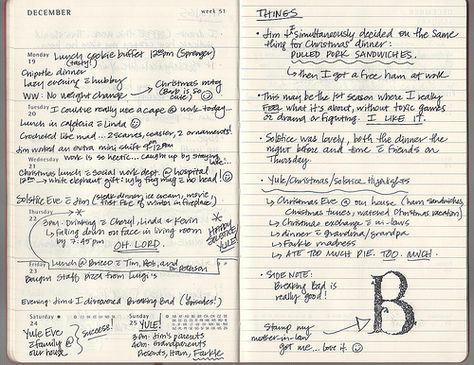 DECEMBER
week 51
Monday
19
Lunch cookie buffet 12pm (Springer)
(tasty!)
Chipotle dinner
Lazy evening c̄ hubby
WW: No weight change
→ Christmas mtng
(Barb is so cute)
Tuesday
20
I could really use a cape @ work today...
Lunch in cafeteria c̄ Linda
Crocheted like mad... 2 scarves, coaster, 2 ornaments!
Jim worked an extra mini shift
12AM
Wednesday
21
work is so hectic... caught up by staying
Christmas lunch c̄ social work dept. @ hospital
12pm → white elephant gift: ugly pug mug c̄ no head!
Solstice Eve c̄ Jim (steak dinner, ice cream, movie,
first fire of winter in fireplace)
Thursday
22
3pm - Drinking c̄ Cheryl, Linda & Kevin
→ falling down on face in living room
by 7:45 pm
OH LORD.
HAPPY
SOLSTICE
YULE!
Friday
23
Lunch @ Brized c̄ Tim, Deb, and
Dr. Peterson
Bought staff pizza from Luigi's
Evening: Jim & I discovered Breaking Bad (4 episodes!)
Saturday
24
Yule Eve
c̄ family @
our house
SUCCESS!
Sunday
25
YULE!
3pm: Jim's parents
6pm: Grandparents
Presents, Ham, Farkle
THINGS
• Jim & I simultaneously decided on the same
thing for Christmas dinner:
PULLED PORK SANDWICHES.
↳ then I got a free ham at work
• This may be the 1st season where I really
FEEL what it's about, without toxic games
or drama or fighting. I LIKE IT.
• Solstice was lovely, both the dinner the
night before and time c̄ friends on
Thursday
• Yule/Christmas/Solstice Highlights
↳ Christmas Eve @ our house (ham sandwiches,
Christmas tunes, watched Christmas Vacation)
↳ Christmas exchange c̄ in-laws
↳ dinner c̄ grandma/grandpa
↳ Farkle madness
↳ ATE TOO MUCH PIE. TOO. MUCH.
• SIDE NOTE:
Breaking Bad is
really good!
B
Stamp my
mother-in-law
got me... love it.